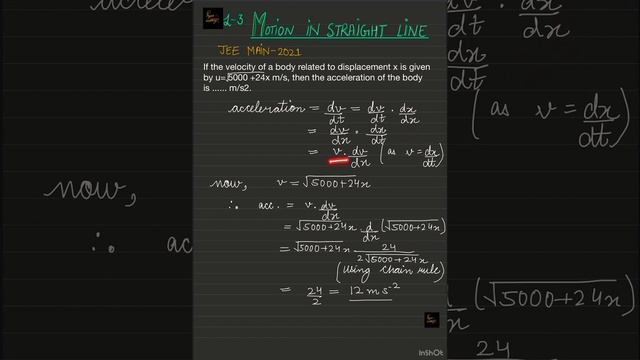 L-3 MOTION IN STRAIGHT LINE
JEE MAIN-2021
If the velocity of a body related to displacement x is given
by u=√5000 +24x m/s, then the acceleration of the body
is ...... m/s2.
acceleration = dv/dt = dv/dt · dx/dx
= dv/dx · dx/dt
= v · dv/dx (as v = dx/dt)
now, v = √5000+24x
∴ acc. = v. dv/dx
= √5000+24x d/dx (√5000+24x)
= √5000+24x 24/2√5000+24x
(using chain rule)
= 24/2 = 12 m s⁻²
InShOt